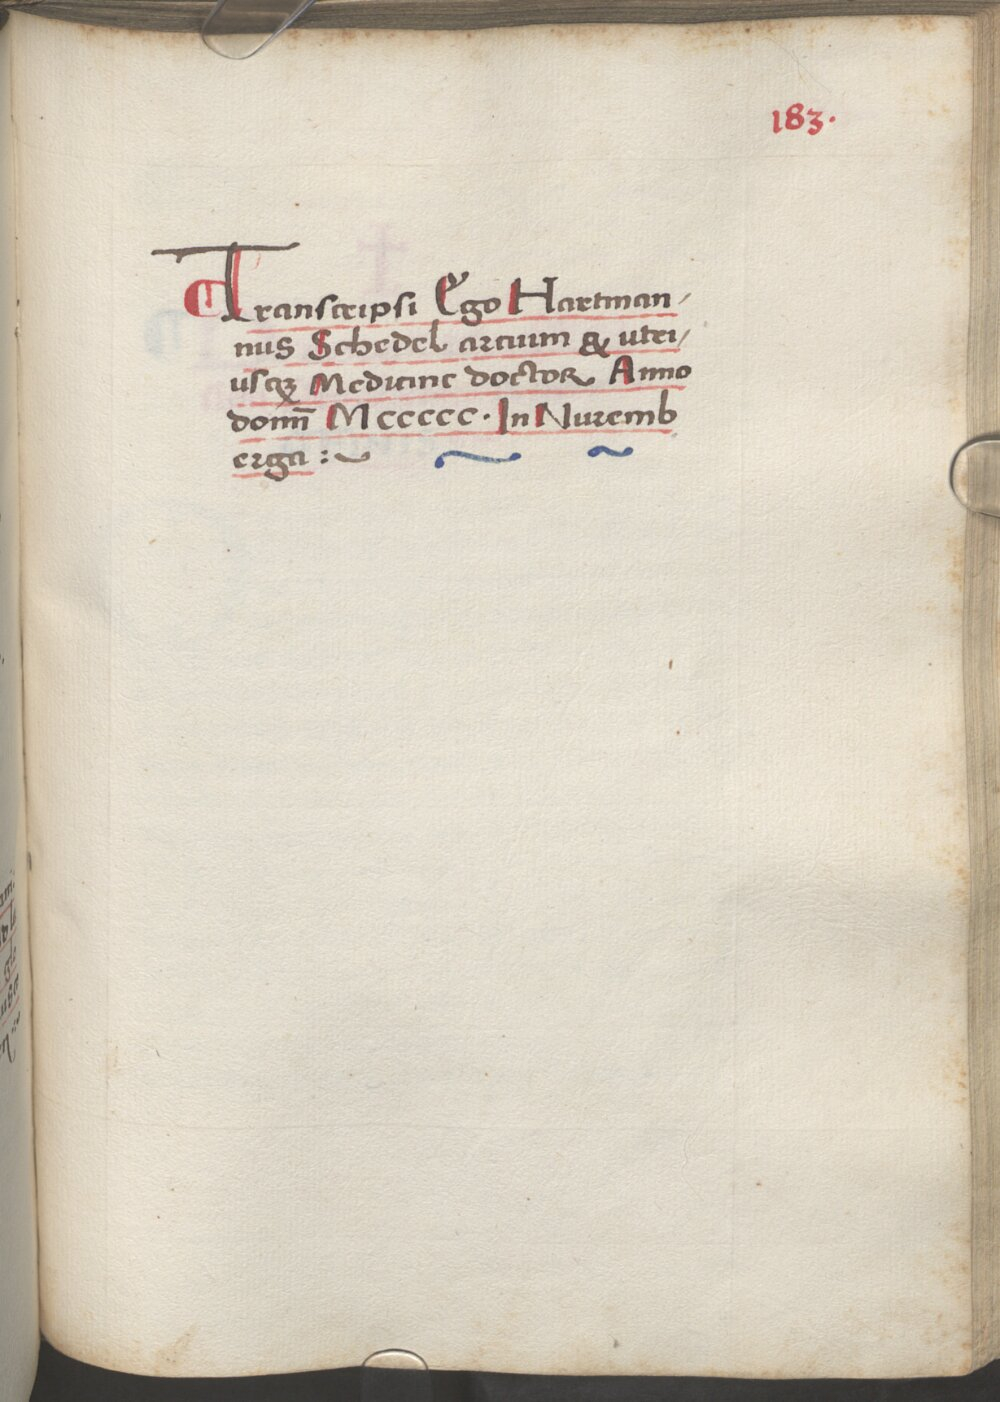 183.
Transcripsi Ego Hartman-
nus Schedel artium & utri-
usqꝫ Medicine doctor Anno
domī Mccccc. In Nuremb
erga :~